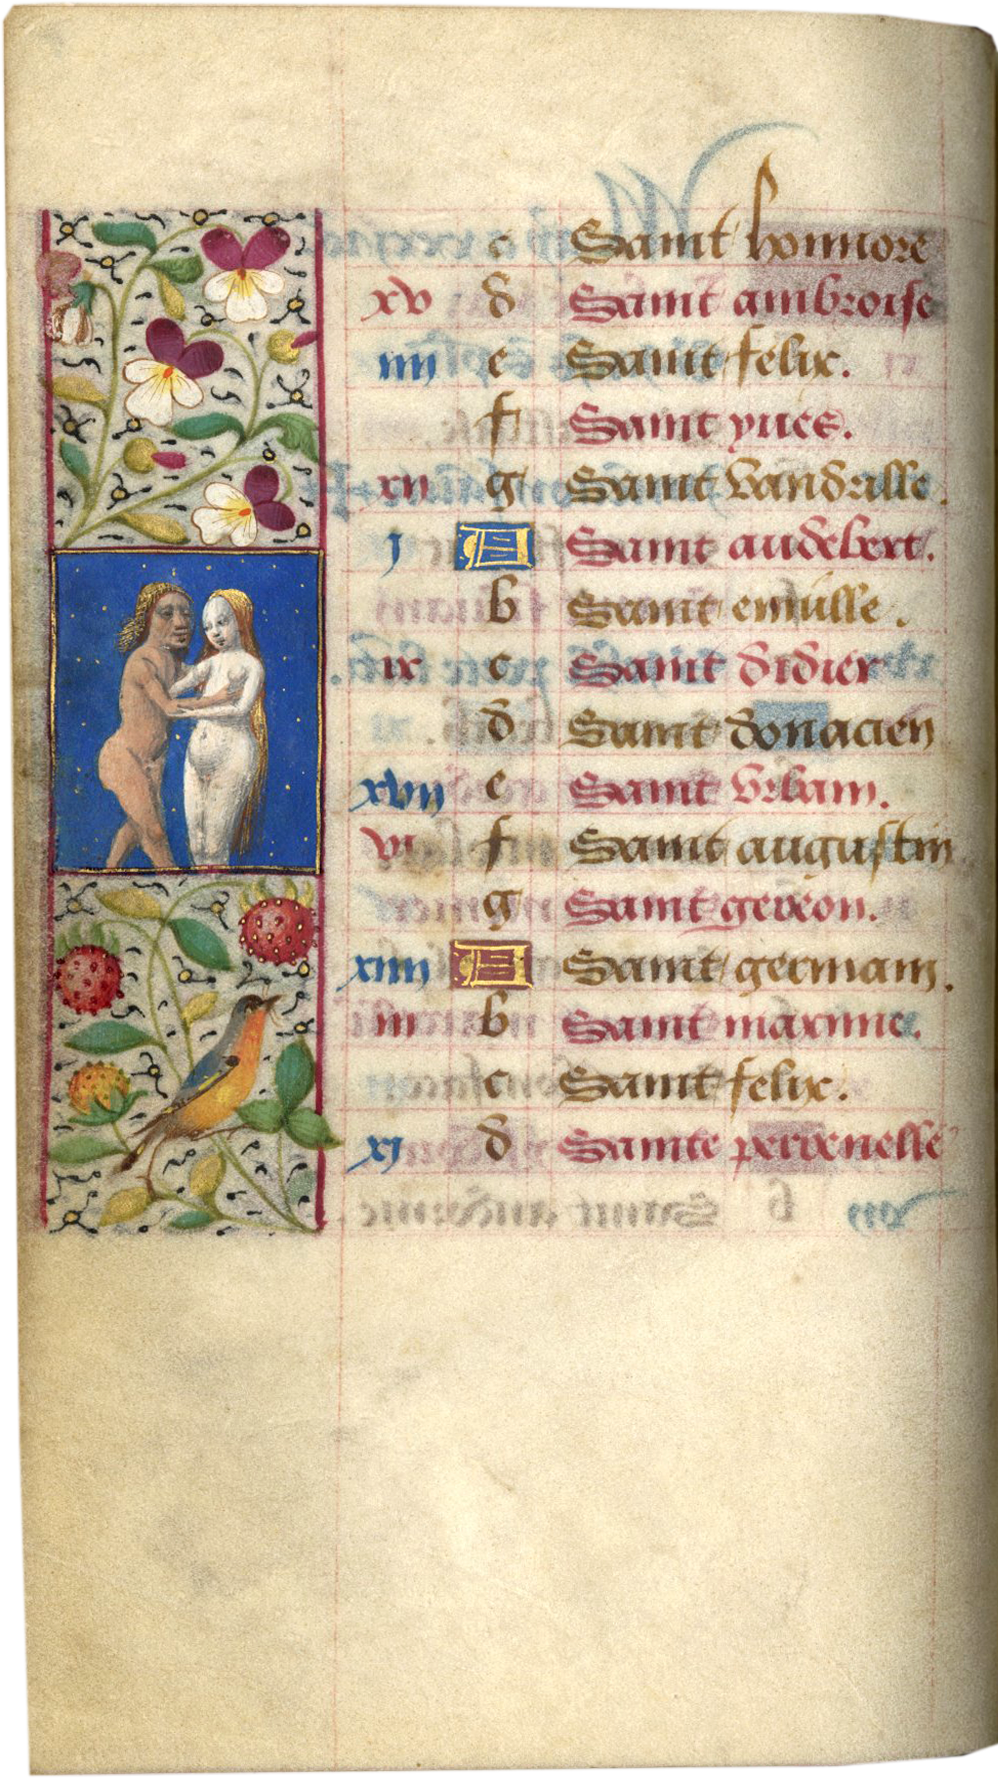 c Saint honnore
xv d Saint ambroise
iiii e Saint felix.
f Saint yues.
xii g Saint vandrille.
j A Saint audebert.
b Saint emille.
ix c Saint didier
d Saint donacien
xvii e Saint vrbain.
vi f Saint augustin
g Saint gedeon.
xiiii A Saint germain.
iii b Saint maxime.
c Saint felix.
xj d Sainte perrenelle